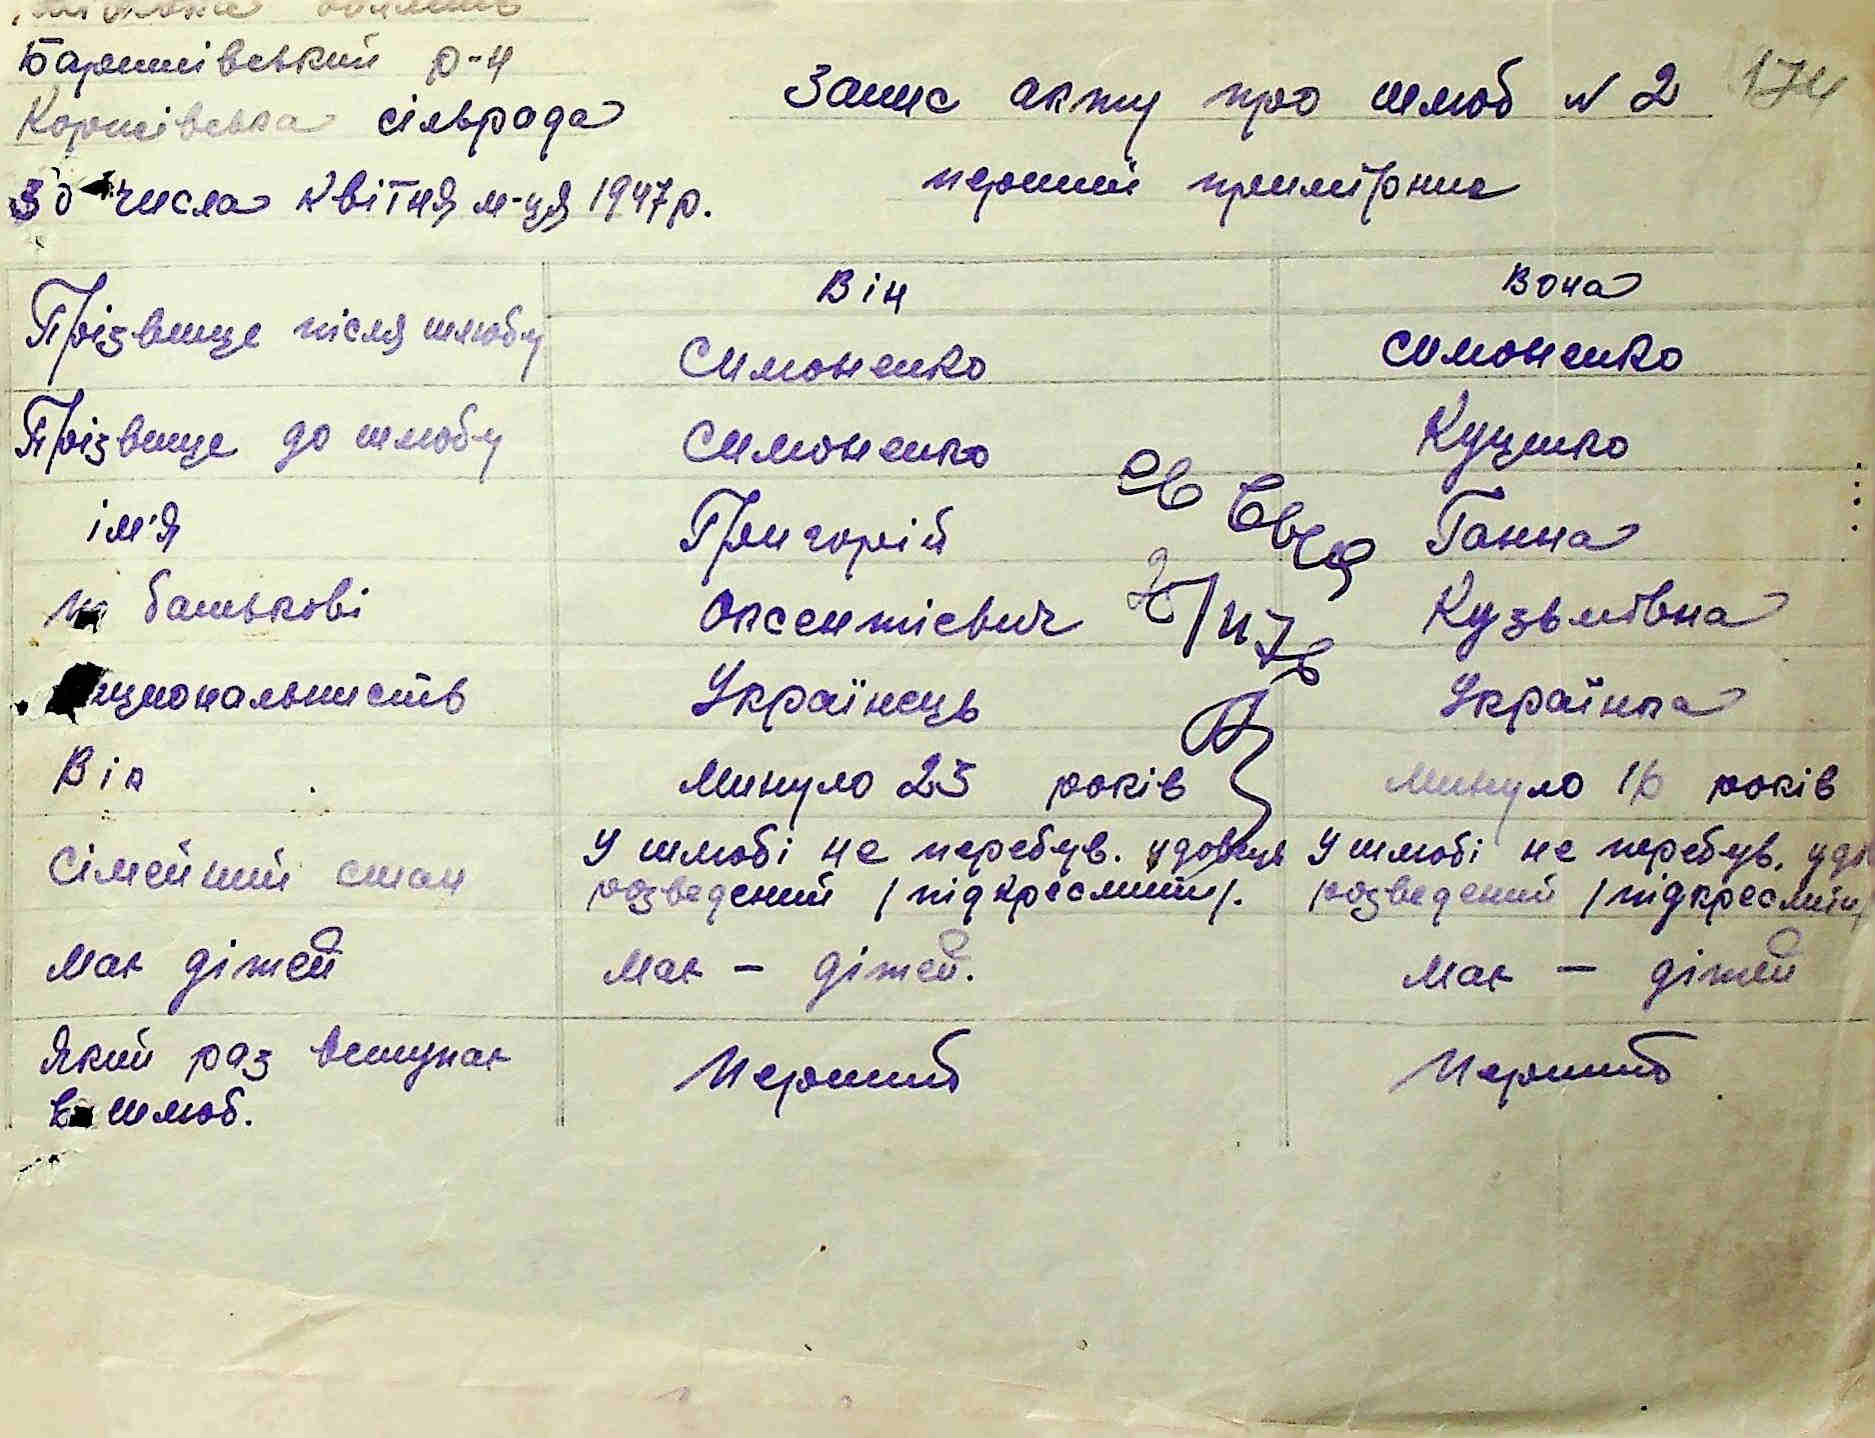 область
Баришівський р-н
Корніївська сільрада
30 числа квітня м-ця 1947 р.
Запис акту про шлюб N 2
перший примірник
Він Вона
Прізвище після шлюбу Симоненко Симоненко
Прізвище до шлюбу Симоненко Куценко
ім'я Григорій Ганна
по батькові Оксентієвич Кузьмівна
ціональність Українець Українка
Вік Минуло 25 років Минуло 16 років
Сімейний стан У шлюбі не перебув. удовець У шлюбі не перебув.
розведений /підкреслити/. розведений /підкреслити/
Має дітей Має — дітей. Має — дітей
Який раз вступає Перший Перший
в шлюб.